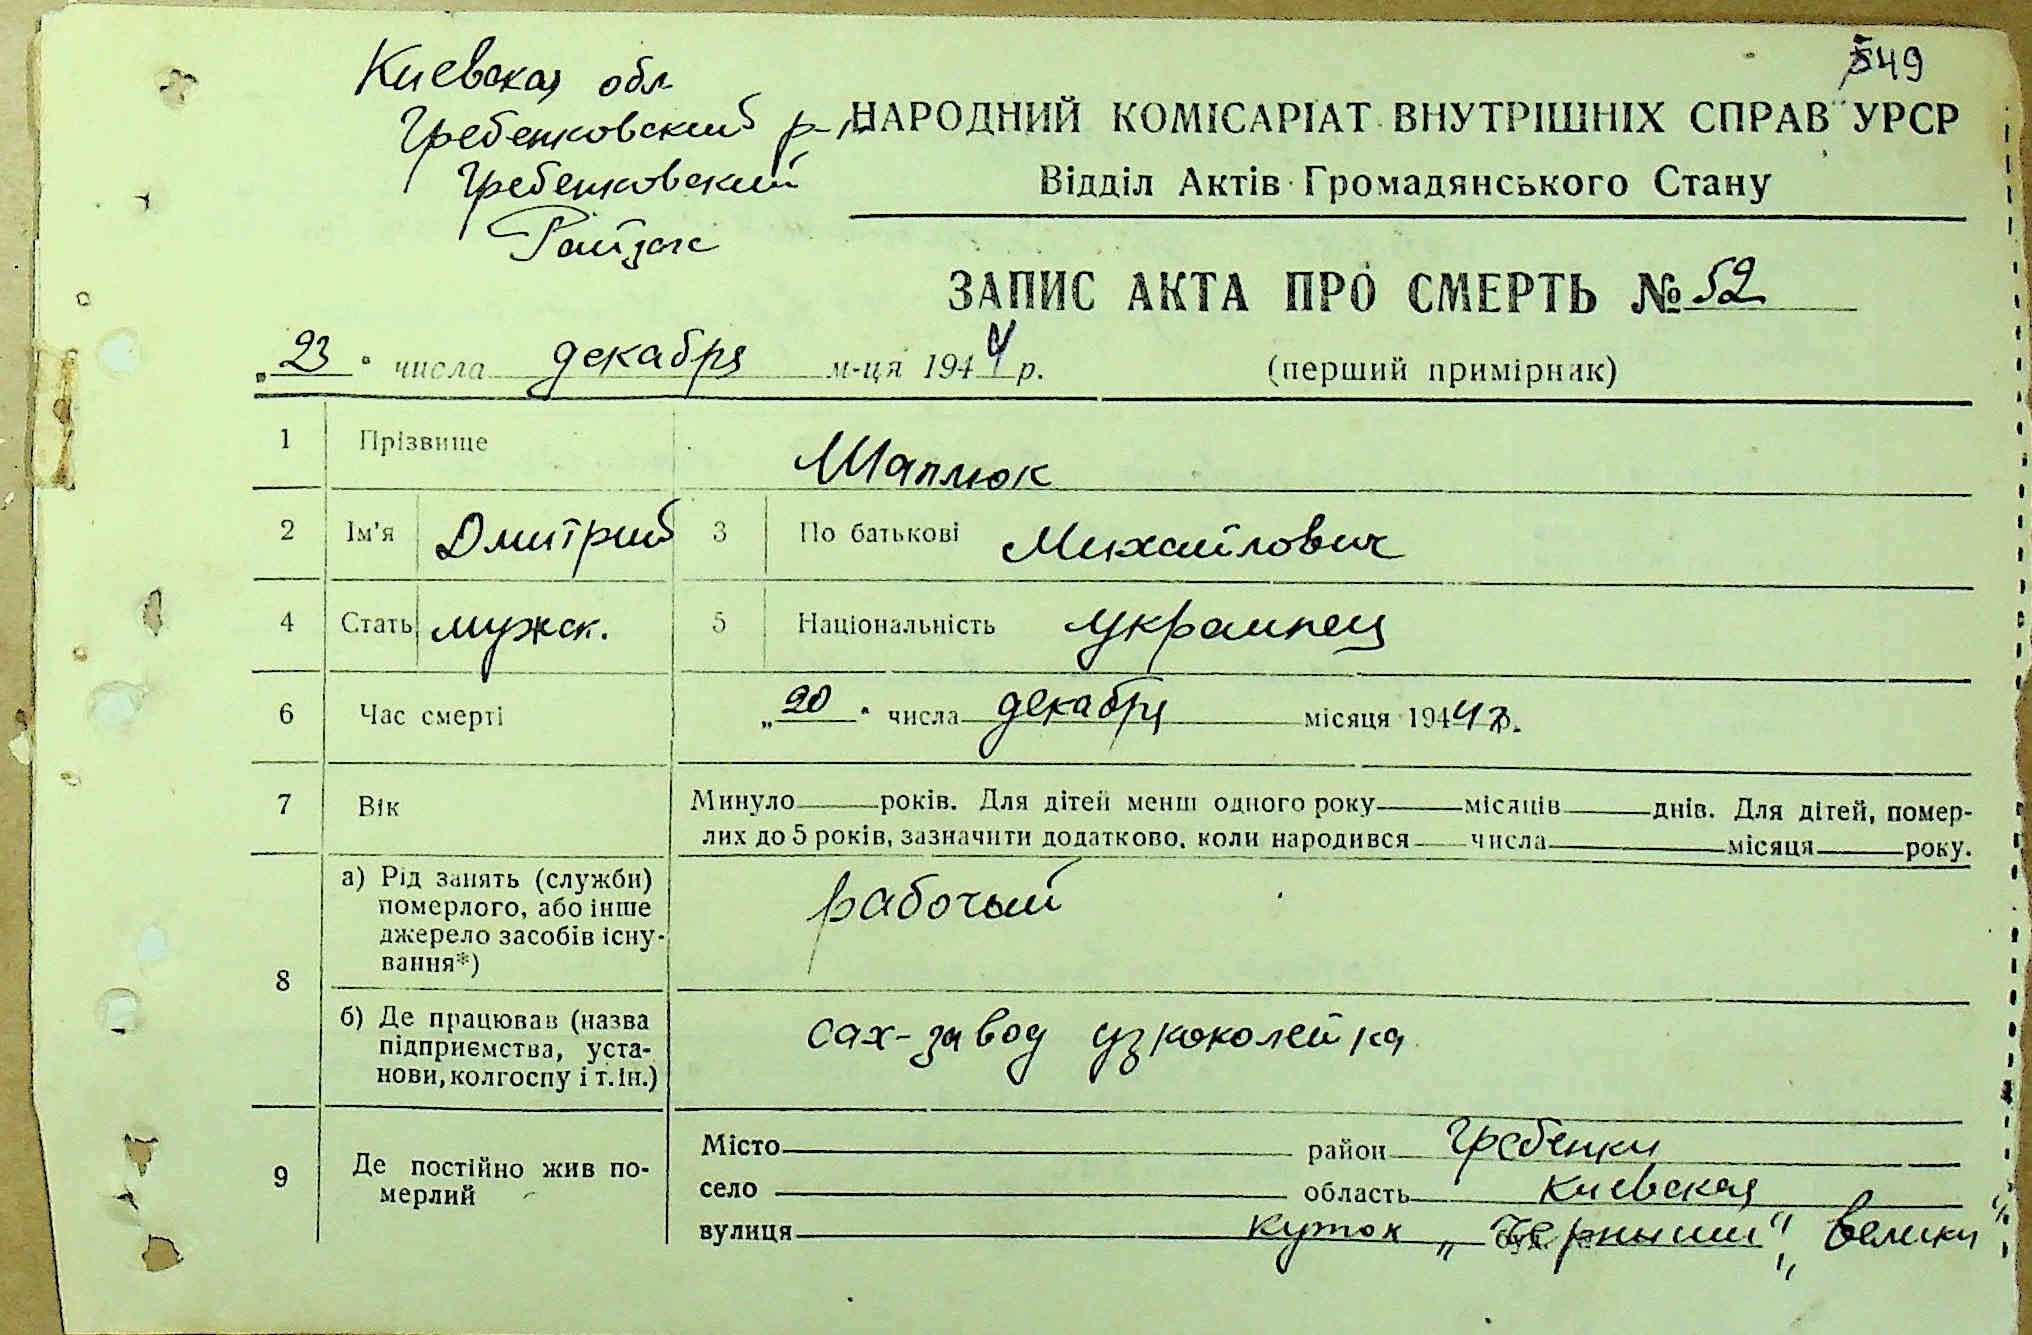 549
Киевская обл
Гребенковский р-н
Гребенковский
Райзагс
НАРОДНИЙ КОМІСАРІАТ ВНУТРІШНІХ СПРАВ УРСР
Відділ Актів Громадянського Стану
ЗАПИС АКТА ПРО СМЕРТЬ № 52
„23“ числа декабря м-ця 1944 р.
(перший примірник)
1 Прізвище Шаплюк
2 Ім'я Дмитрий 3 По батькові Михайлович
4 Стать мужск. 5 Національність украинец
6 Час смерті „20“ числа декабря місяця 1944 р.
7 Вік Минуло років. Для дітей менш одного року місяців днів. Для дітей, помер-
лих до 5 років, зазначити додатково, коли народився числа місяця року.
8 а) Рід занять (служби)
померлого, або інше
джерело засобів існу-
вання*)
рабочый
б) Де працював (назва
підприємства, уста-
нови, колгоспу і т. ін.)
сах-завод узкоколейка
9 Де постійно жив по-
мерлий
Місто район Гребенки
село область Киевская
вулиця куток „ “ „велики“